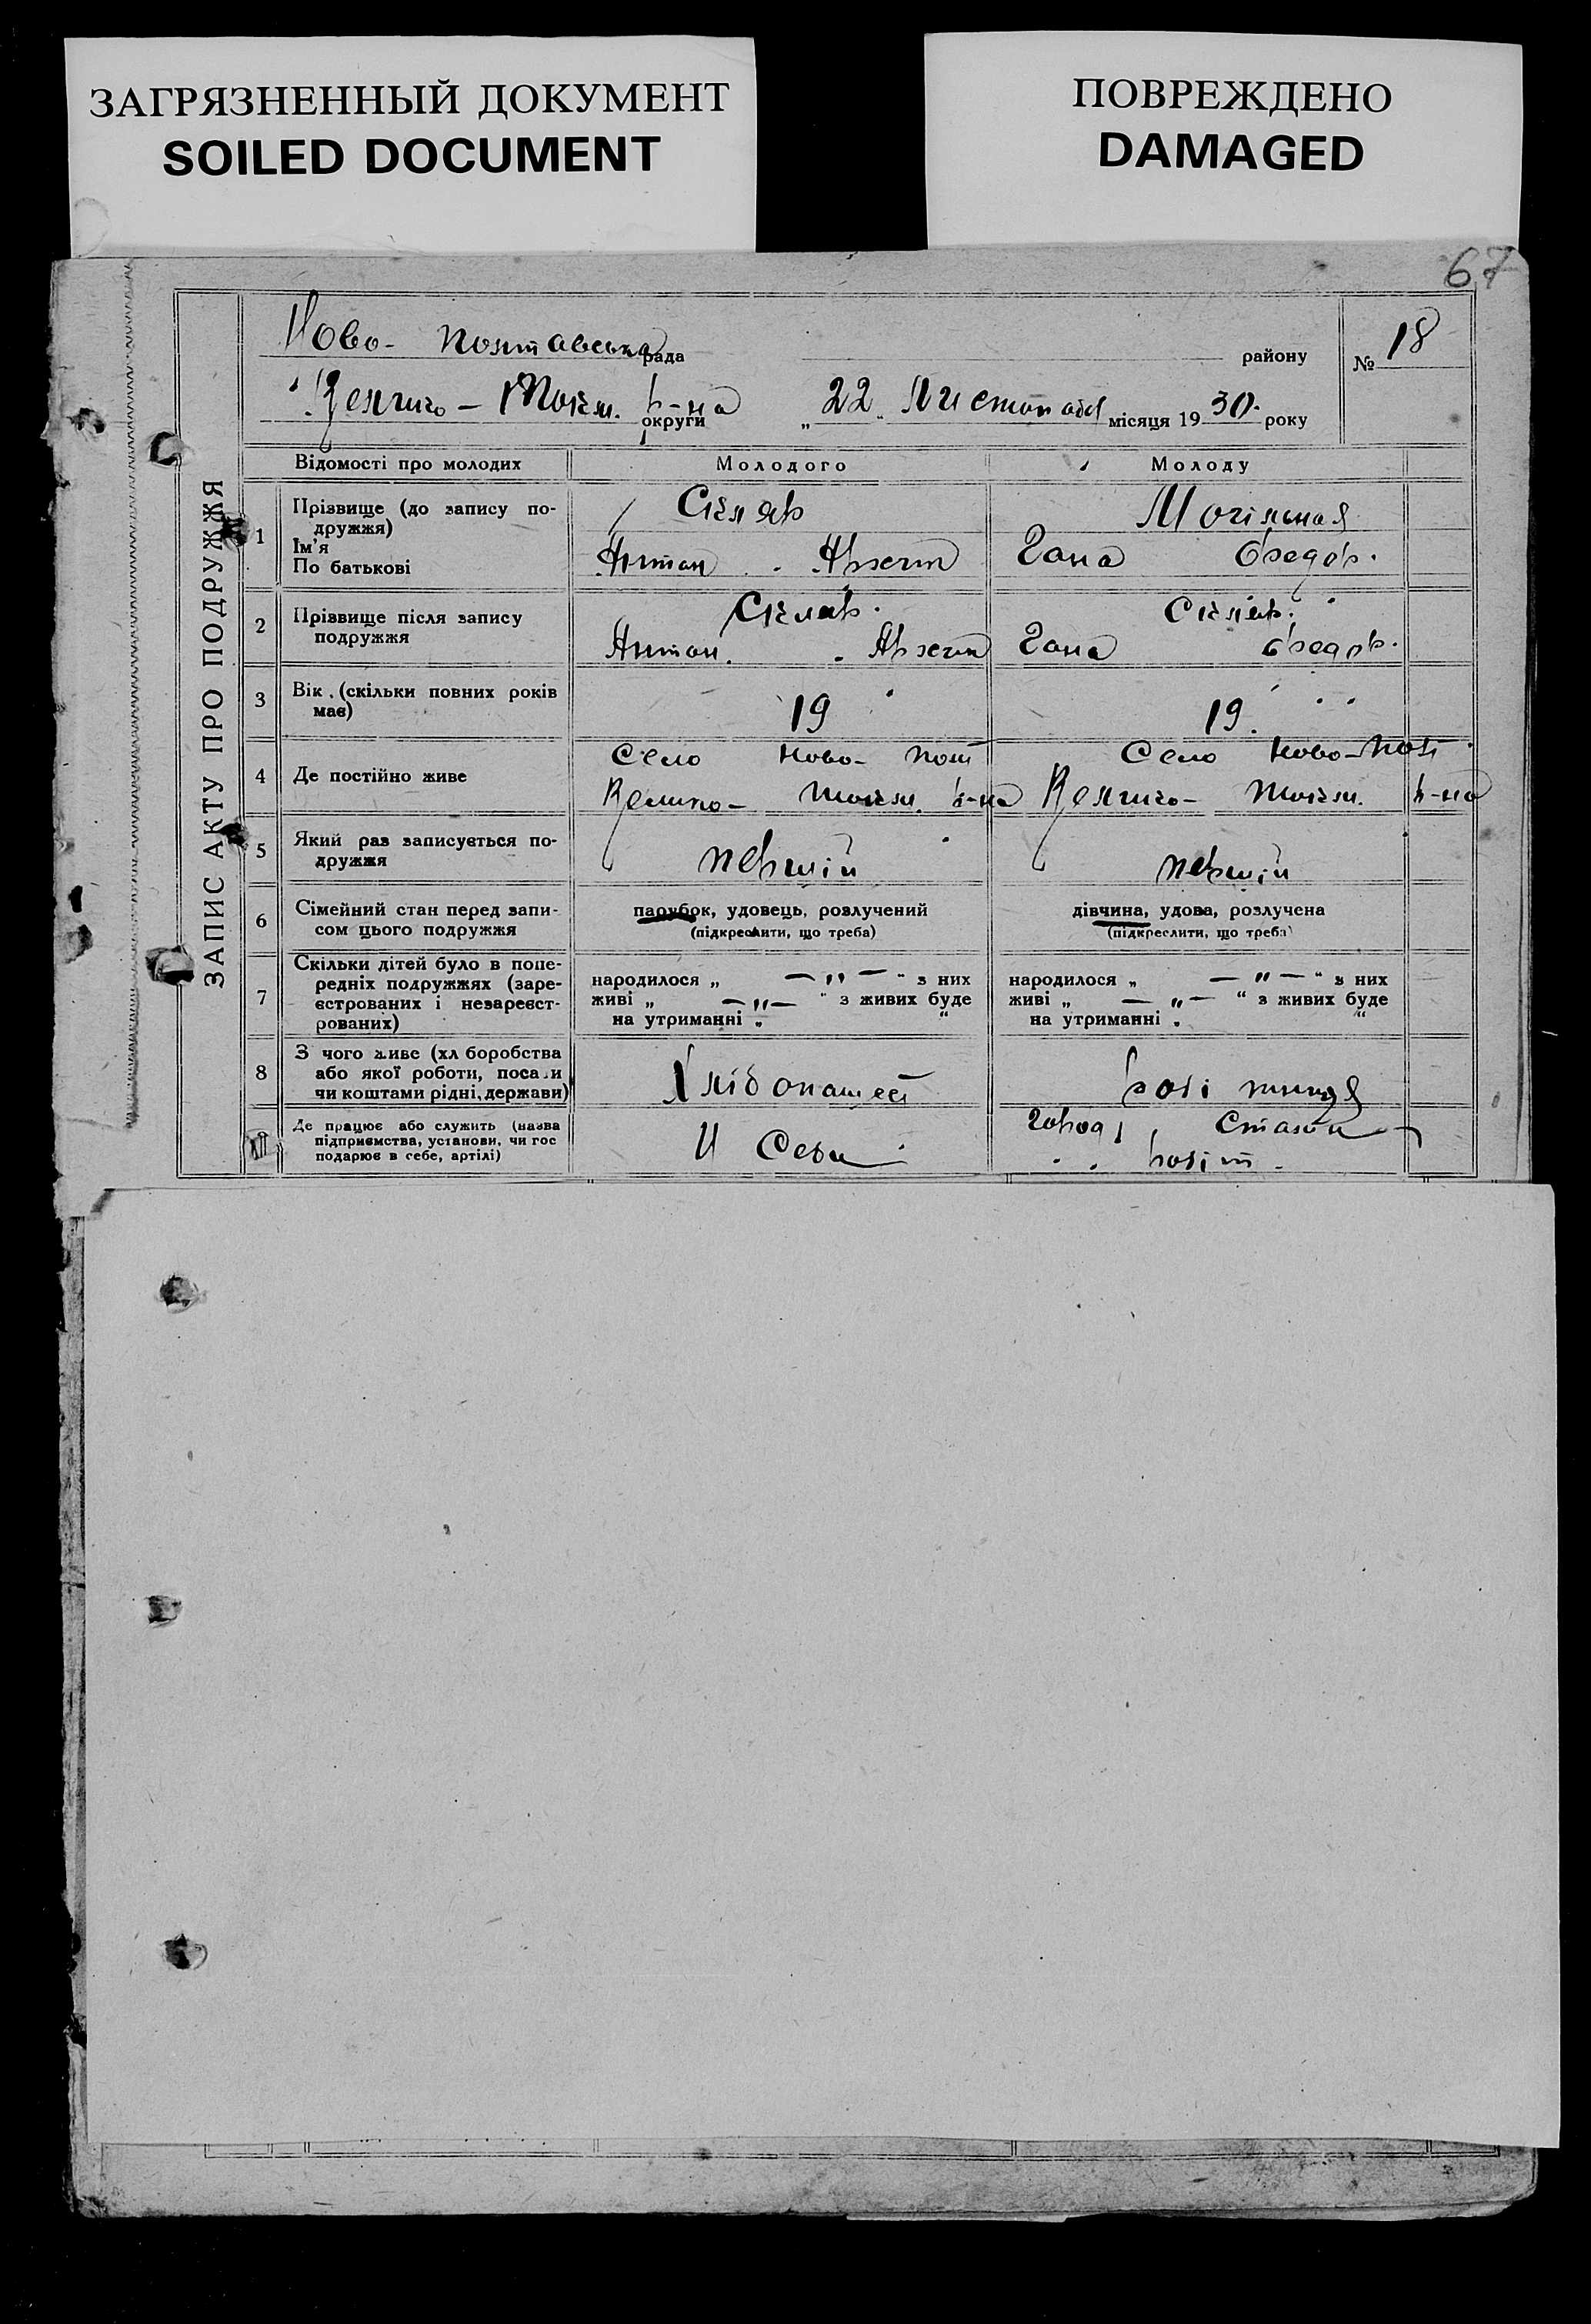 ЗАГРЯЗНЕННЫЙ ДОКУМЕНТ
SOILED DOCUMENT
ПОВРЕЖДЕНО
DAMAGED
67
ЗАПИС АКТУ ПРО ПОДРУЖЖЯ
Ново- Полтавська рада району № 18
Велико- Токм. р-на округи „22" Листопада місяця 1930. року
Відомості про молодих Молодого Молоду
1 Прізвище (до запису по-
дружжя)
Ім'я
По батькові
Скляр Могільная
Антон Гана Федор.
2 Прізвище після запису
подружжя
Скляр. Скляр.
Антон. Гана Федор.
3 Вік (скільки повних років
має)
19 19.
4 Де постійно живе
Село Ново- Полт Село Ново-Полт
Велико- Токм. р-на Велико- Токм. р-на
5 Який раз записується по-
дружжя
перший перший
6 Сімейний стан перед запи-
сом цього подружжя
парубок, удовець, розлучений
(підкреслити, що треба)
дівчина, удова, розлучена
(підкреслити, що треба)
7 Скільки дітей було в попе-
редніх подружжях (заре-
єстрованих і незареєст-
рованих)
народилося „ — „ — " з них
живі „ — „ — " з живих буде
на утриманні „ "
народилося „ — „ — " з них
живі „ — „ — " з живих буде
на утриманні „ "
8 З чого живе (хліборобства
або якої роботи, посади
чи коштами рідні, держави)
Хлібопашест робітниця
Де працює або служить (назва
підприємства, установи, чи гос
подарює в себе, артілі)
И Себи
робіт.
№ 18